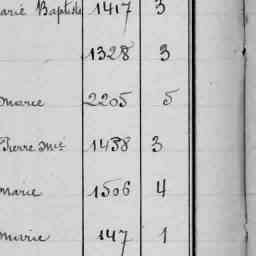 arie Baptiste 1417 3
1328 3
marie 2205 5
Pierre Mie 1438 3
marie 1506 4
marie 147 1